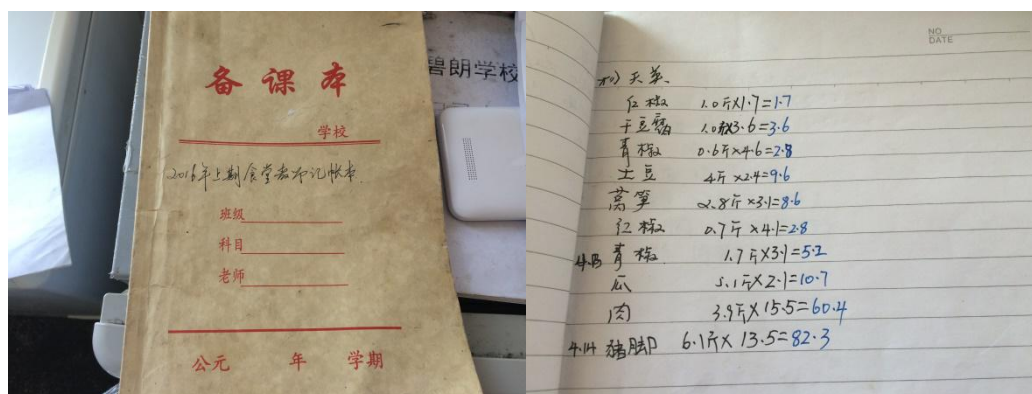 备课本
学校
2016年上期食堂发布记帐本
班级
科目
老师
公元 年 学期
碧朗学校
NO
DATE
天菜
红椒 1.0斤×1.7=1.7
干豆腐 1.0斤×3.6=3.6
青椒 0.6斤×4.6=2.8
土豆 4斤×2.4=9.6
莴笋 2.8斤×3.1=8.6
红椒 0.7斤×4.1=2.8
4.13 青椒 1.7斤×3.1=5.2
瓜 5.1斤×2.1=10.7
肉 3.9斤×15.5=60.4
4.14 猪脚 6.1斤×13.5=82.3